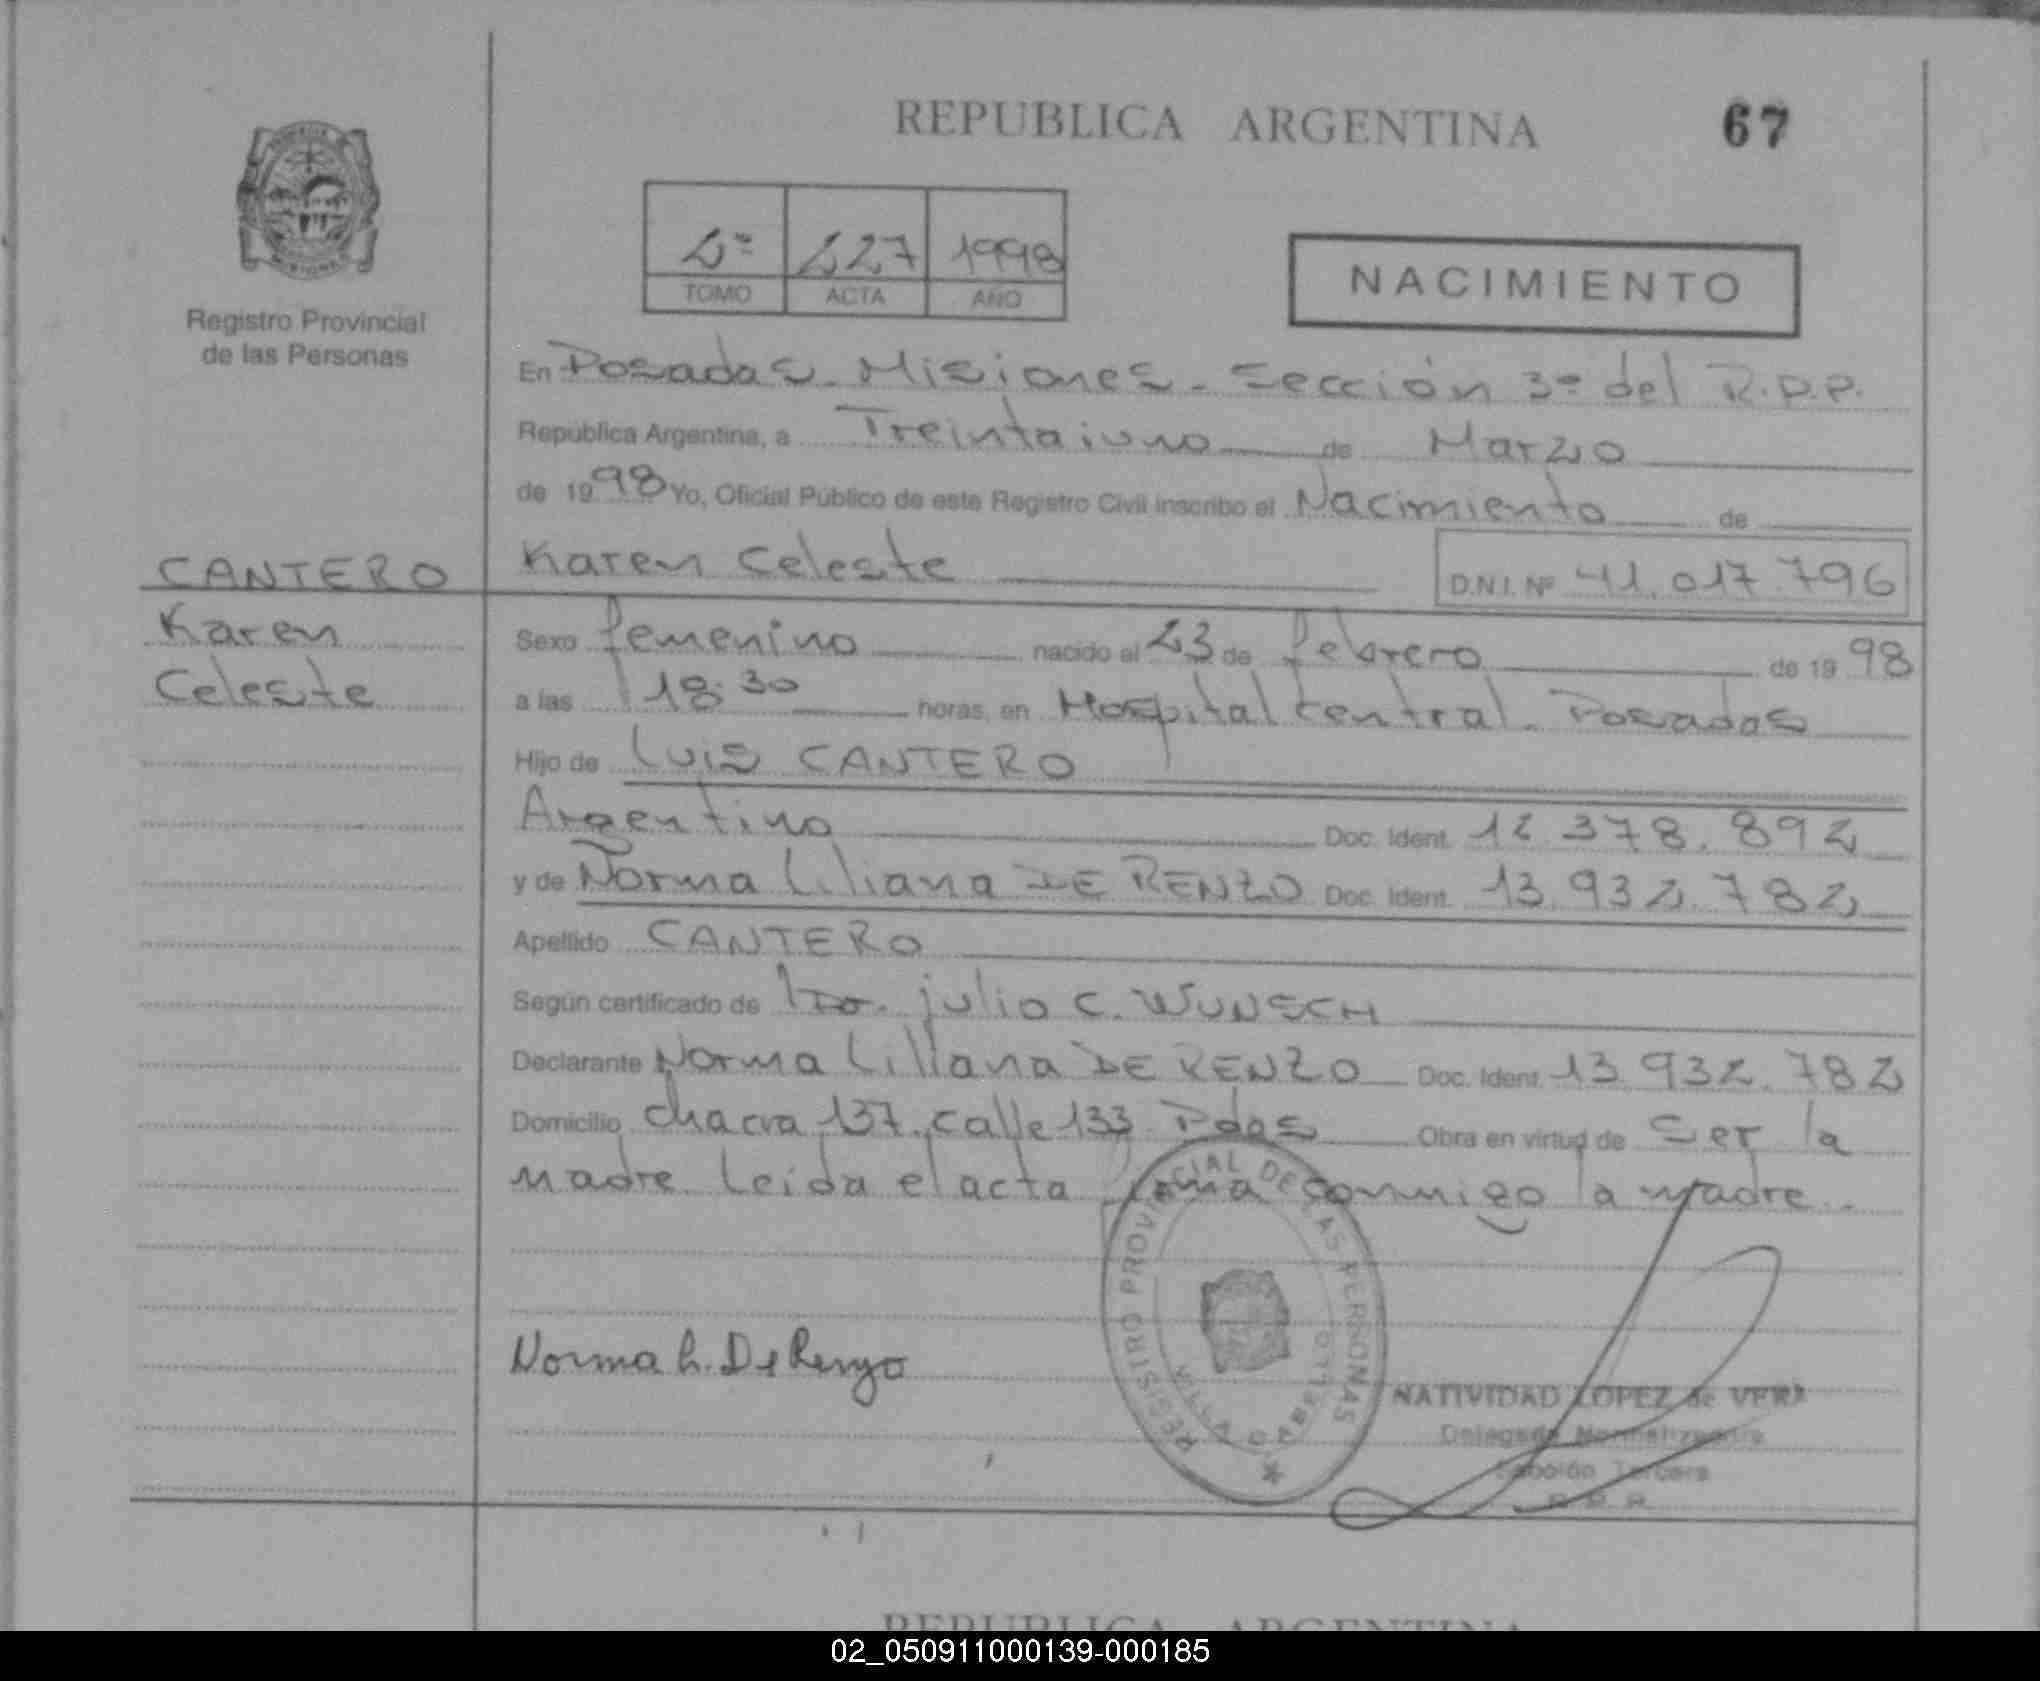 REPUBLICA ARGENTINA 67
2º 227 1998
TOMO ACTA AÑO
NACIMIENTO
Registro Provincial
de las Personas
En Posadas - Misiones - Sección 3º del R.P.P.
República Argentina, a Treintaiuno de Marzo
de 1998 Yo, Oficial Público de este Registro Civil inscribo el Nacimiento de
CANTERO Karen Celeste D.N.I. Nº 41.017.796
Karen Sexo femenino nacido el 23 de febrero de 1998
Celeste a las 18:30 horas, en Hospital Central - Posadas
Hijo de Luis CANTERO
Argentino Doc. Ident. 12.378.892
y de Norma Liliana DE RENZO Doc. Ident. 13.932.782
Apellido CANTERO
Según certificado de Dr. julio C. WUNSCH
Declarante Norma Liliana DE RENZO Doc. Ident. 13.932.782
Domicilio chacra 137. calle 133 Pdas Obra en virtud de Ser la
madre. Leida el acta firma conmigo la madre..
REGISTRO PROVINCIAL DE LAS PERSONAS
VILLA CABELLO
Norma L. De Renzo
NATIVIDAD LOPEZ de VERA
Delegada Normalizadora
Sección Tercera
R.P.P.
REPUBLICA ARGENTINA
02_050911000139-000185